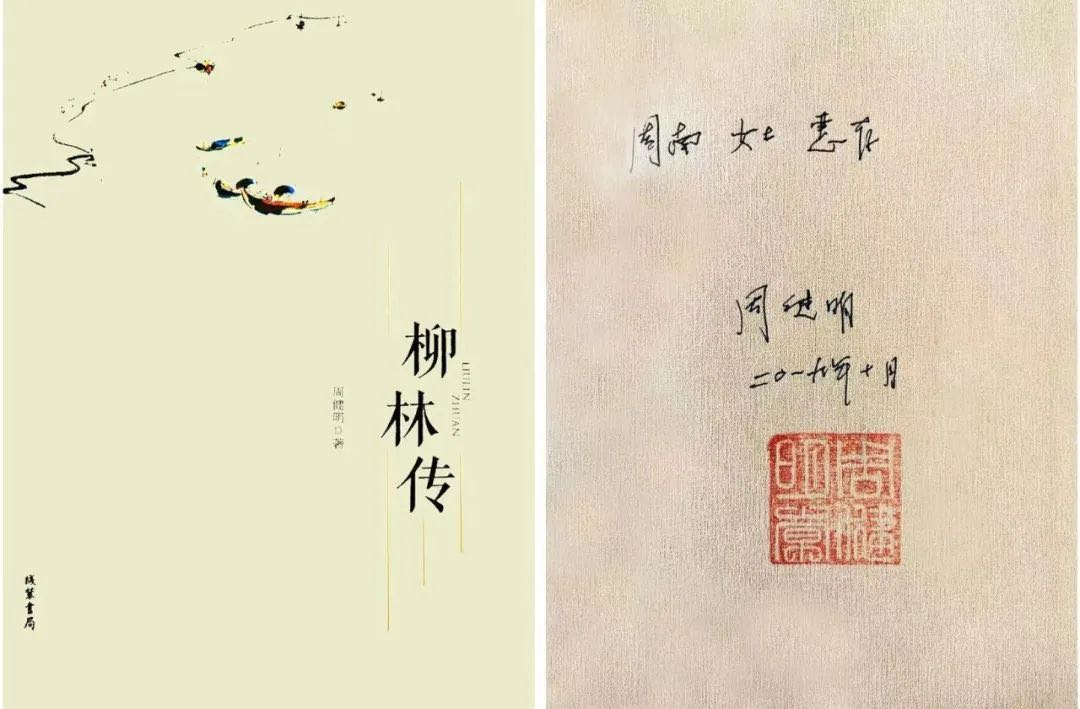 柳林传
LIULIN ZHUAN
周健明 著
线装书局
周南 女士 惠存
周健明
二〇一九年十月
周健明